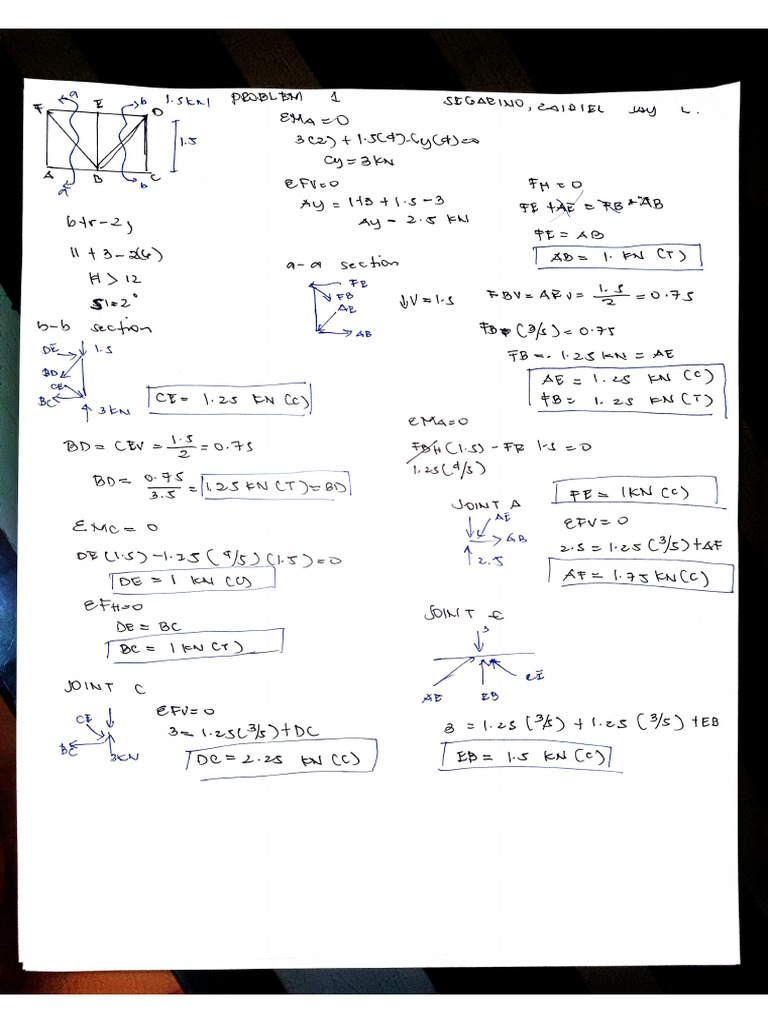 PROBLEM 1
SEGARINO, CAIDIEL JAY L.
a
F E b 1.5KN
D
1.5
A B C
a b
b+r-2j
11+3-2(6)
14 > 12
SI=2°
b-b section
DE 1.5
BD
CE
BC 3KN
CE = 1.25 KN (C)
BD = CEV = 1.5/2 = 0.75
BD = 0.75/3.5 = 1.25 KN (T) = BD
ΣMC = 0
DE(1.5) - 1.25(4/5)(1.5) = 0
DE = 1 KN (C)
ΣFH=0
DE = BC
BC = 1 KN (T)
JOINT C
CE
BC 3KN
ΣFV=0
3=1.25(3/5)+DC
DC = 2.25 KN (C)
ΣMA=0
3(2) + 1.5(4)-Cy(4)=0
Cy = 3 KN
ΣFV=0
Ay = 1+3+1.5-3
Ay = 2.5 KN
a-a section
FE
FB
AE
AB
↓V=1.5
FH = 0
FE + AE = FB + AB
FE = AB
AB = 1. KN (T)
FBV = AEV = 1.5/2 = 0.75
FB (3/5) = 0.75
FB = 1.25 KN = AE
AE = 1.25 KN (C)
FB = 1.25 KN (T)
ΣMA=0
FBH (1.5) - FE 1.5 = 0
1.25(4/5)
FE = 1KN (C)
JOINT A
AE
AB
2.5
ΣFV=0
2.5 = 1.25(3/5)+AF
AF = 1.75 KN (C)
JOINT E
3
AE EB CE
3 = 1.25 (3/5) + 1.25 (3/5) +EB
EB = 1.5 KN (C)